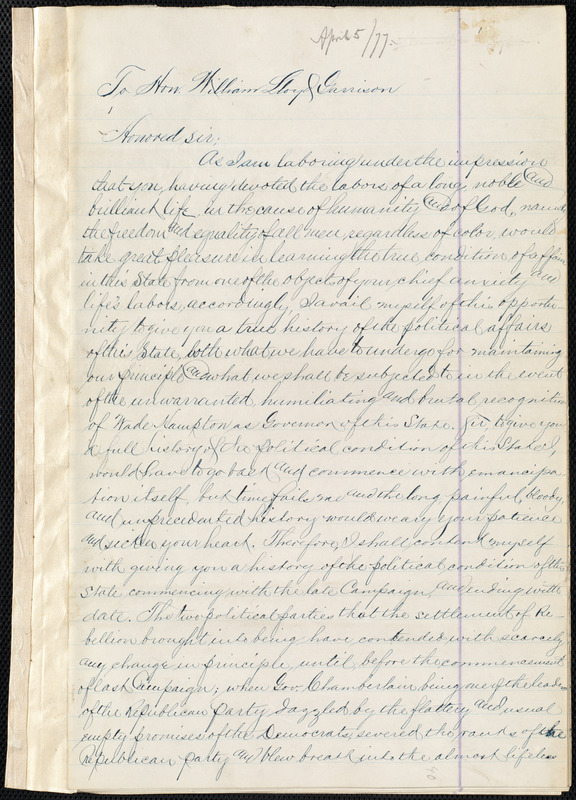 April 5/77.
To Hon. William Lloyd Garrison
Honored sir;
As I am laboring under the impression
that you, having devoted the labors of a long, noble and
brilliant life in the cause of humanity and of God, namely
the freedom and equality of all men, regardless of color, would
take great pleasure in learning the true condition of affairs
in this State from one of the object of your chief anxiety and
life's labors, accordingly, I avail myself of this opportu-
nity to give you a true history of the political affairs
of this State, with what we have to undergo for maintaining
our principle and what we shall be subjected to in the event
of the unwarranted, humiliating and brutal recognition
of Wade Hampton as Governor of this State. Sir, to give you
a full history of the political condition of this State I,
would have to go back and commence with emancipa-
tion itself, but time fails me and the long, painful, bloody,
and unprecedented history would weary your patience
and sicken your heart. Therefore, I shall content myself
with giving you a history of the political condition of this
State commencing with the late Campaign, and ending with
date. The two political parties that the settlement of Re-
bellion brought into being have contended with scarcely
any change in principle, until before the commencement
of last Campaign; when Gov. Chamberlain being one of the leaders
of the Republican party dazzled by the flattery and usual
empty promises of the Democrats, severed the ranks of the
Republican party and blew breath into the almost lifeless